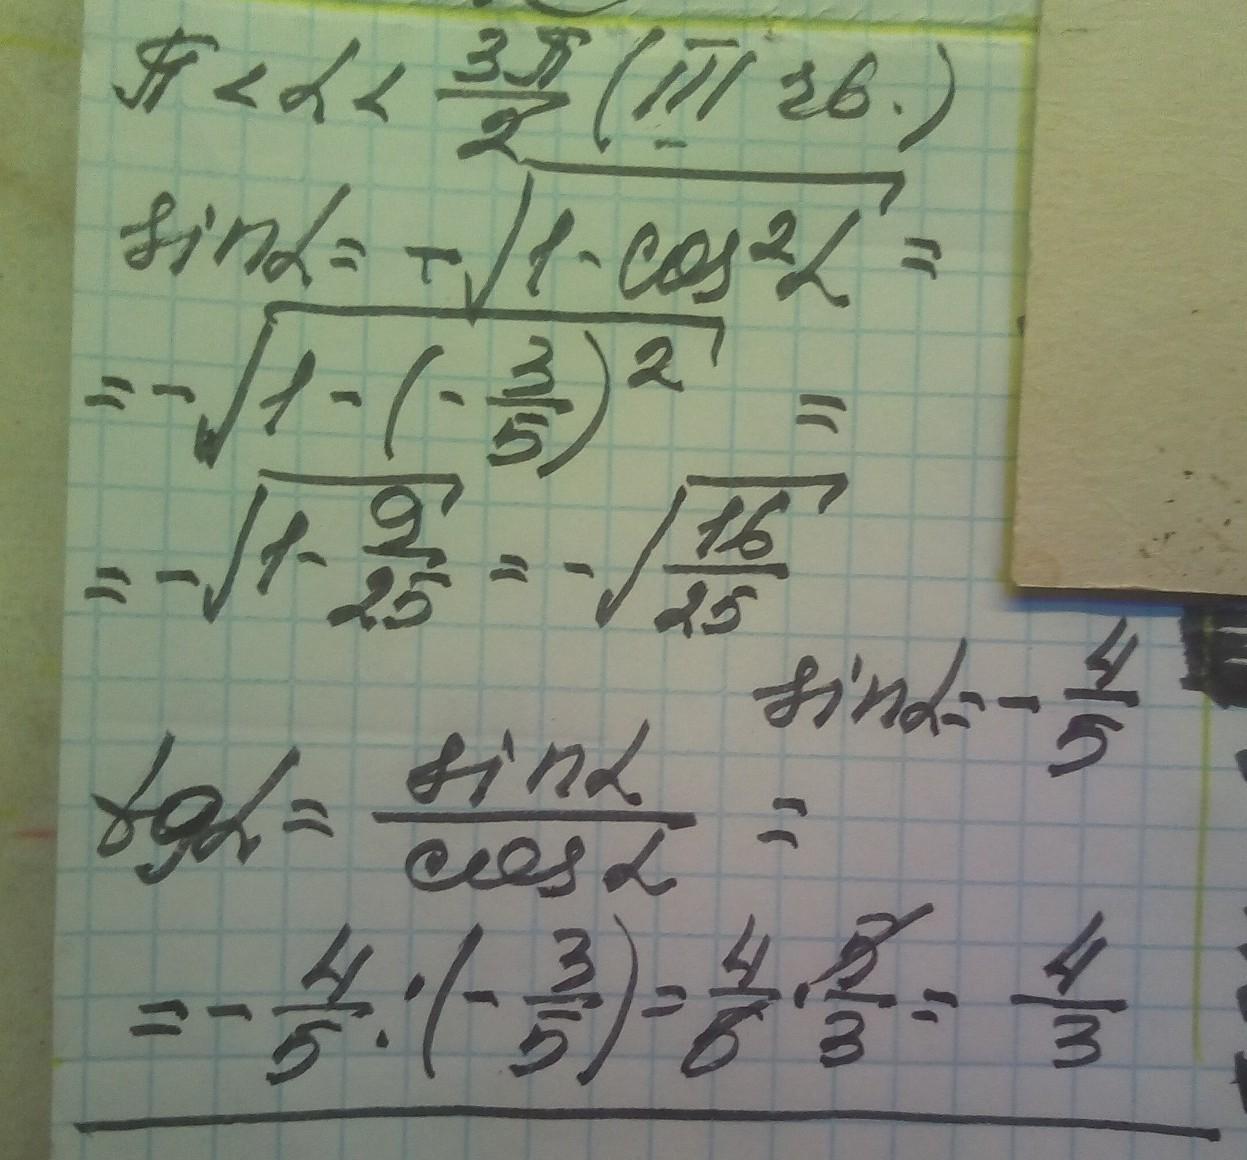 π < α < 3π/2 (III чв.)
sinα = -√(1 - cos²α) =
= -√(1 - (-3/5)²) =
= -√(1 - 9/25) = -√(16/25)
sinα = -4/5
tgα = sinα/cosα =
= -4/5 : (-3/5) = 4/5 · 5/3 = 4/3